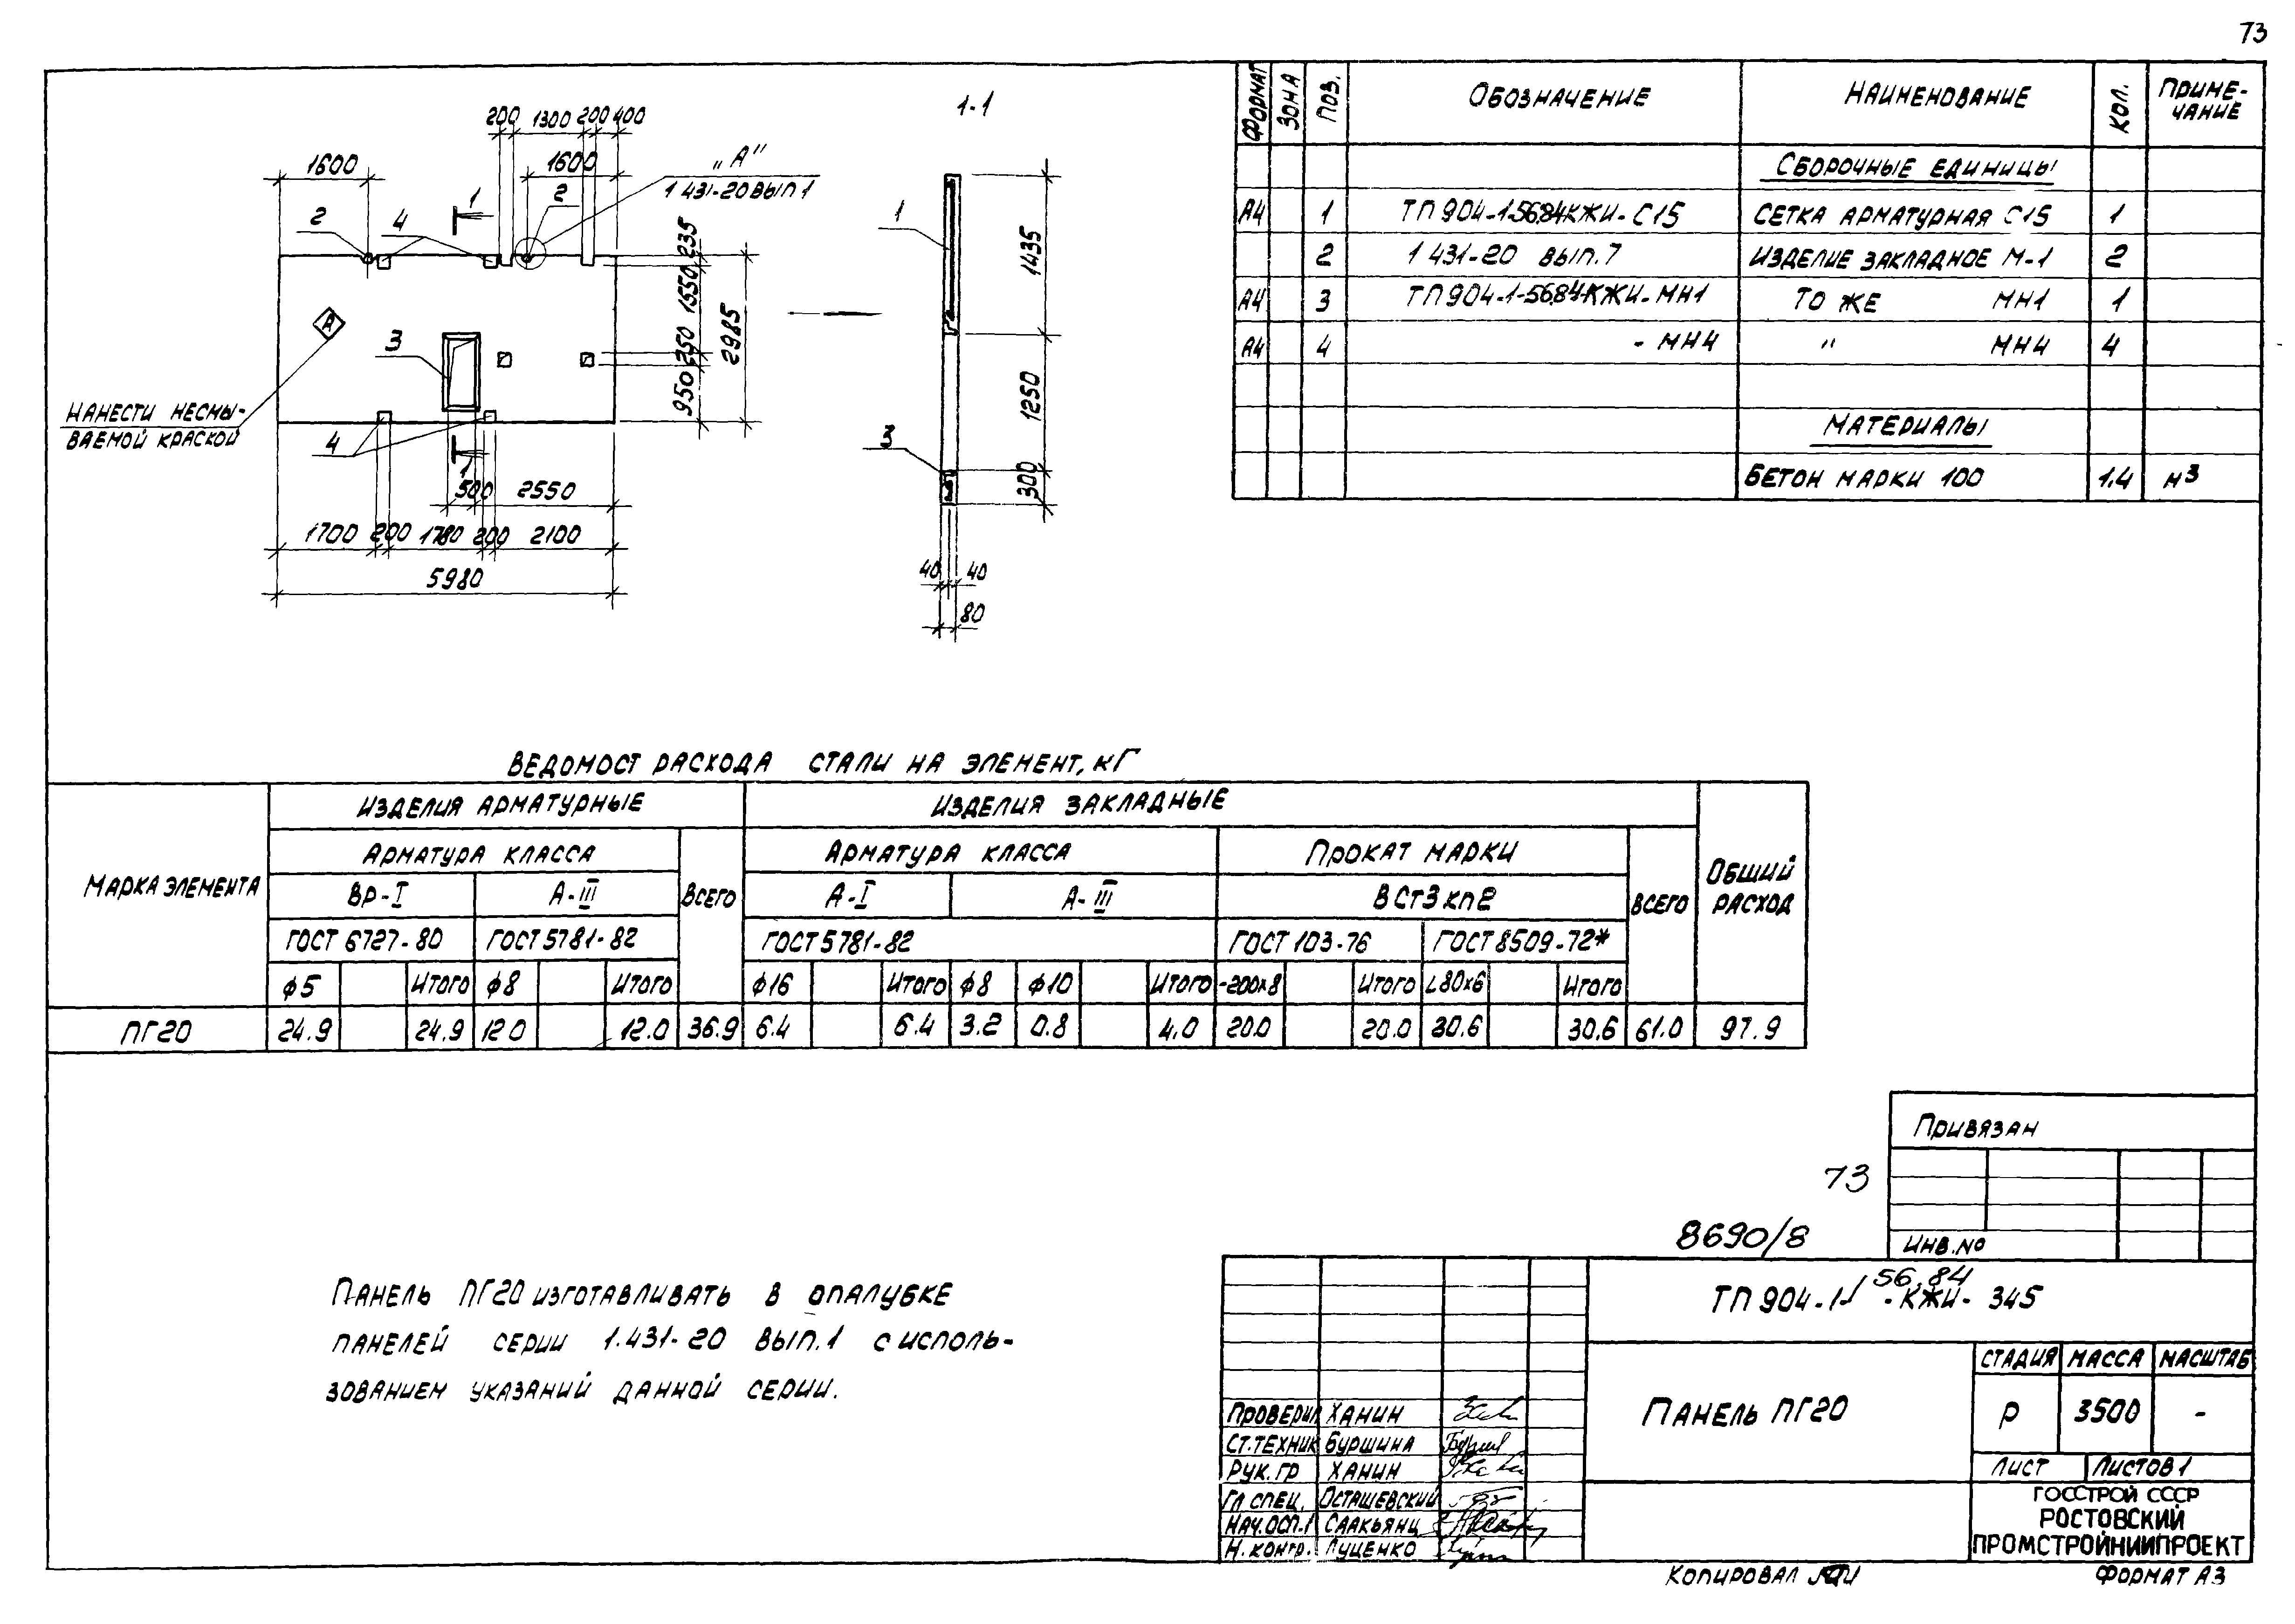 73
1-1
200 1300 200 400
1600
1600
„А"
1 431-20 ВЫП 1
1
2
2
4
235
1550
250
950
2985
А
3
НАНЕСТИ НЕСМЫ-
ВАЕМОЙ КРАСКОЙ
4
1
500 2550
1700 200 1780 200 2100
5980
1
3
1435
1250
300
40 40
80
ФОРМАТ ЗОНА ПОЗ. ОБОЗНАЧЕНИЕ НАИМЕНОВАНИЕ КОЛ. ПРИМЕ-
ЧАНИЕ
СБОРОЧНЫЕ ЕДИНИЦЫ
А4 1 ТП 904-1-56.84 КЖИ-С15 СЕТКА АРМАТУРНАЯ С15 1
2 1 431-20 ВЫП.7 ИЗДЕЛИЕ ЗАКЛАДНОЕ М-1 2
А4 3 ТП 904-1-56.84-КЖИ-МН1 ТО ЖЕ МН1 1
А4 4 - МН4 " МН4 4
МАТЕРИАЛЫ
БЕТОН МАРКИ 100 1.4 м3
ВЕДОМОСТ РАСХОДА СТАЛИ НА ЭЛЕМЕНТ, КГ
МАРКА ЭЛЕМЕНТА ИЗДЕЛИЯ АРМАТУРНЫЕ ИЗДЕЛИЯ ЗАКЛАДНЫЕ ОБЩИЙ
РАСХОД
АРМАТУРА КЛАССА ВСЕГО АРМАТУРА КЛАССА ПРОКАТ МАРКИ ВСЕГО
ВР-I А-III А-I А-III В Ст3 кп2
ГОСТ 6727-80 ГОСТ 5781-82 ГОСТ 5781-82 ГОСТ 103-76 ГОСТ 8509-72*
ф5 ИТОГО ф8 ИТОГО ф16 ИТОГО ф8 ф10 ИТОГО -200x8 ИТОГО L80x6 ИТОГО
ПГ20 24.9 24.9 12 0 12.0 36.9 6.4 6.4 3.2 0.8 4.0 20.0 20.0 30.6 30.6 61.0 97.9
ПРИВЯЗАН
ИНВ.№
73
8690/8
ПАНЕЛЬ ПГ20 ИЗГОТАВЛИВАТЬ В ОПАЛУБКЕ
ПАНЕЛЕЙ СЕРИИ 1.431-20 ВЫП.1 С ИСПОЛЬ-
ЗОВАНИЕМ УКАЗАНИЙ ДАННОЙ СЕРИИ.
56.84
ТП 904-1- -КЖИ- 345
ПАНЕЛЬ ПГ20
СТАДИЯ МАССА МАСШТАБ
Р 3500 -
ЛИСТ ЛИСТОВ 1
ГОССТРОЙ СССР
РОСТОВСКИЙ
ПРОМСТРОЙНИИПРОЕКТ
ПРОВЕРИЛ ХАНИН
СТ.ТЕХНИК БУРШИНА
РУК. ГР ХАНИН
ГЛ СПЕЦ. ОСТАШЕВСКИЙ
НАЧ.ОСП-1 СААКЬЯНЦ
Н. КОНТР. ЛУЦЕНКО
КОПИРОВАЛ
ФОРМАТ А3